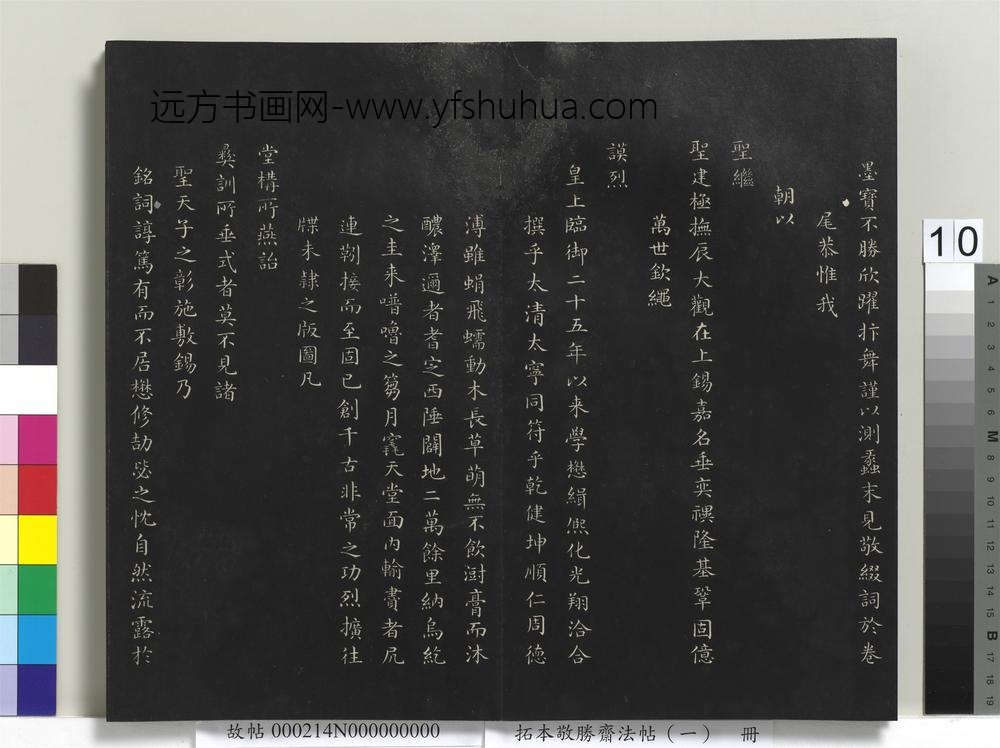 远方书画网-www.yfshuhua.com
墨寶不勝欣躍抃舞謹以測蠡末見敬綴詞於卷
尾恭惟我
朝以
聖繼
聖建極撫辰大觀在上錫嘉名垂奕禩隆基鞏固億
萬世欽繩
謨烈
皇上臨御二十五年以来學懋緝熙化光翔洽合
撰乎太清太寧同符乎乾健坤順仁周德
溥雖蜎飛蠕動木長草萌無不飲澍膏而沐
醲澤邇者耆定西陲闢地二萬餘里納烏紇
之圭来噜嚕之篘月竁天堂面内輸賮者尻
連軔接而至固已創千古非常之功烈擴往
牒未隷之版圖凡
堂構所燕詒
彝訓所垂式者莫不見諸
聖天子之彰施敷錫乃
銘詞諄篤有而不居懋修劼毖之忱自然流露於
10
A
1
2
3
4
5
6
M
8
9
10
11
12
13
14
15
B
17
18
19
故帖 000214N000000000
拓本敬勝齋法帖（一） 冊